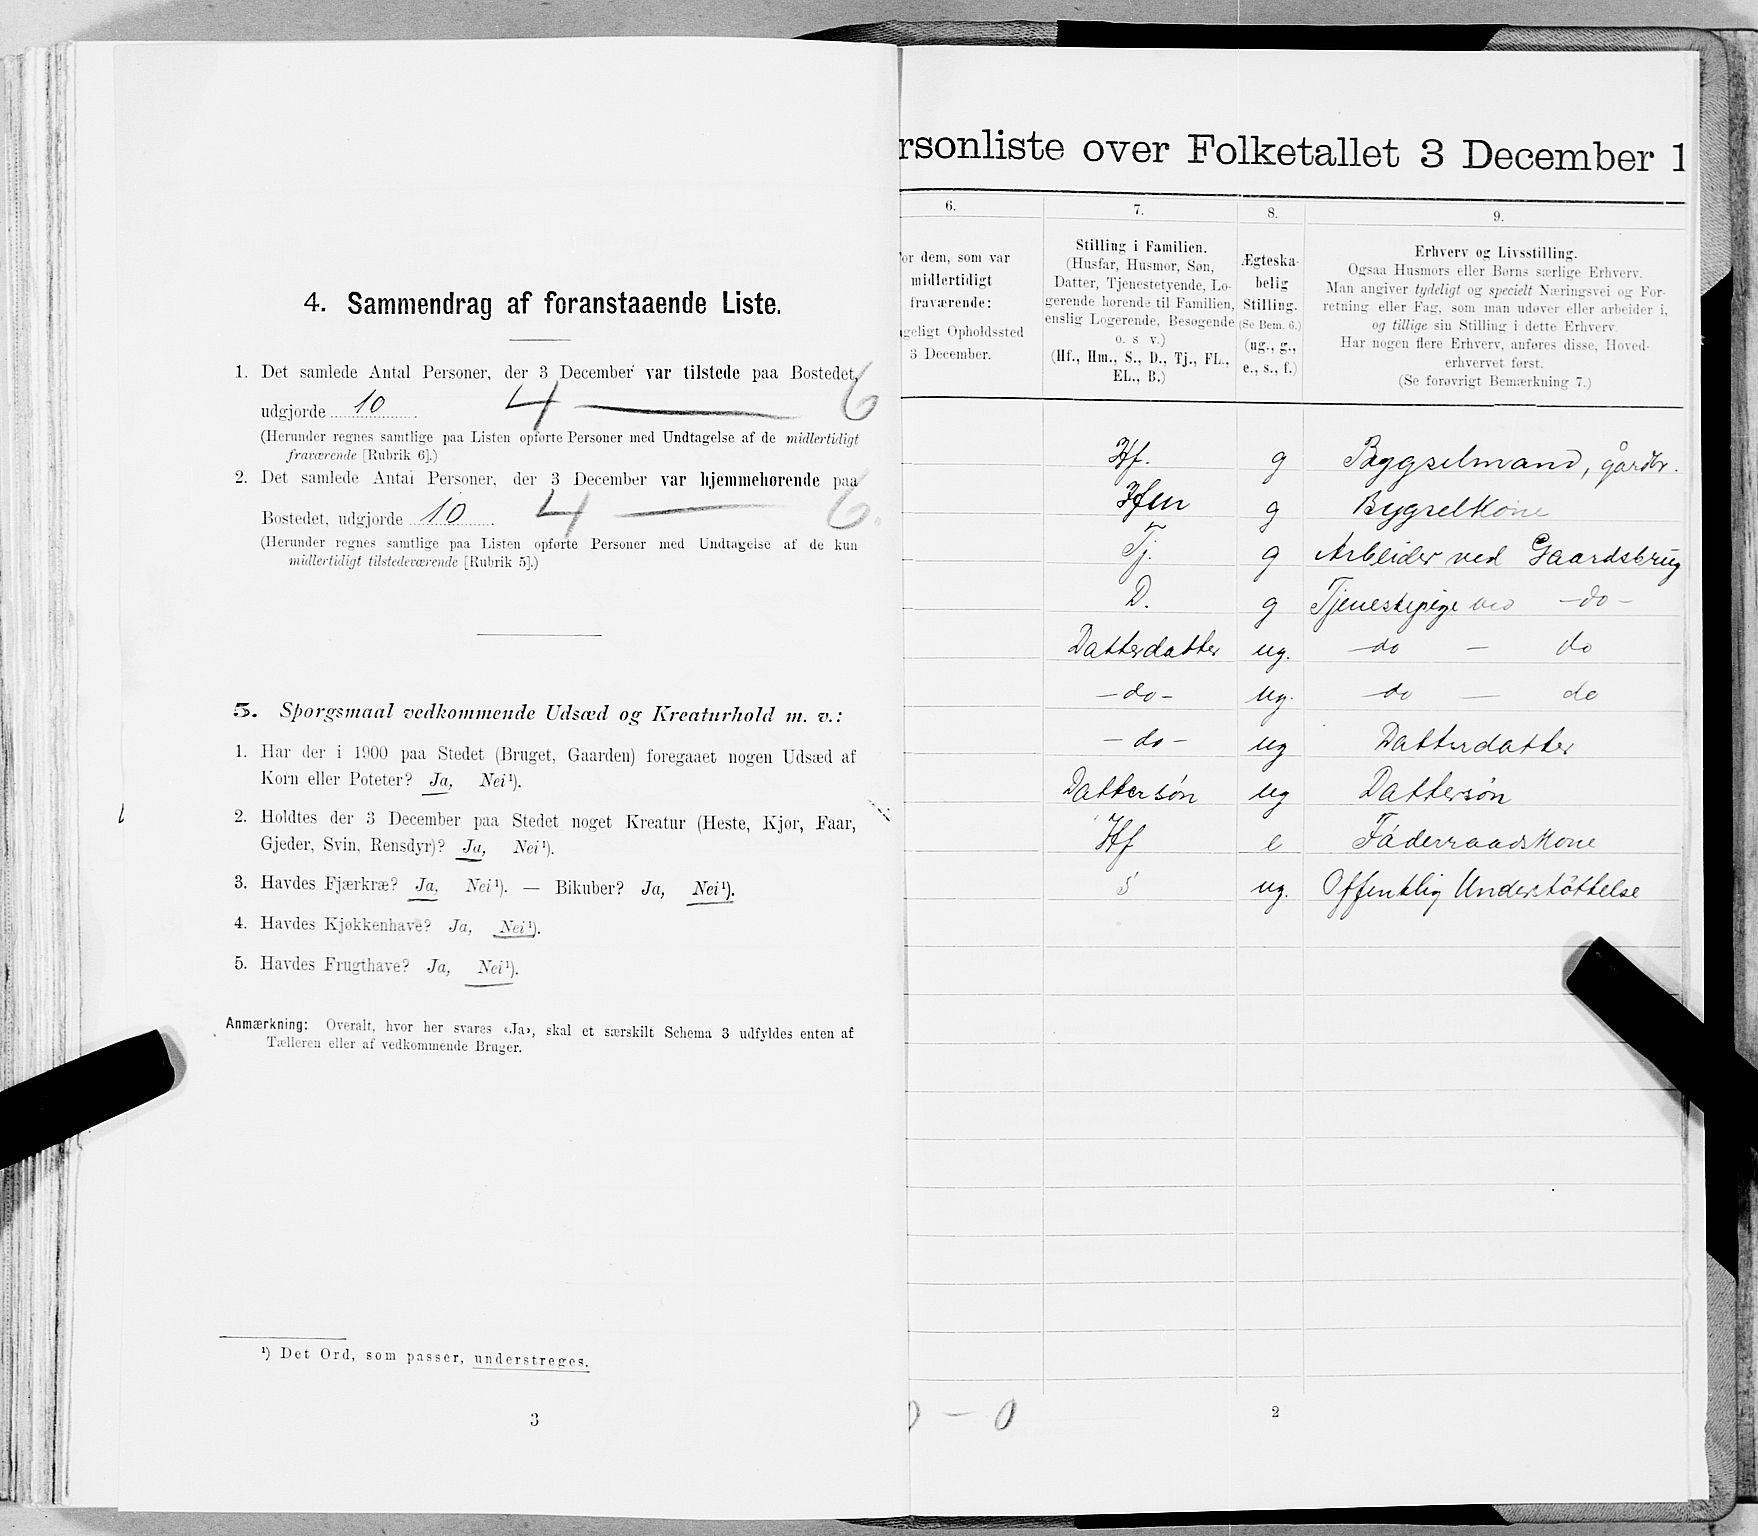 4. Sammendrag af foranstaaende Liste.
1. Det samlede Antal Personer, der 3 December var tilstede paa Bostedet,
udgjorde 10 4 — 6
(Herunder regnes samtlige paa Listen opførte Personer med Undtagelse af de midlertidigt
fraværende [Rubrik 6].)
2. Det samlede Antal Personer, der 3 December var hjemmehørende paa
Bostedet, udgjorde 10 4 — 6.
(Herunder regnes samtlige paa Listen opførte Personer med Undtagelse af de kun
midlertidigt tilstedeværende [Rubrik 5].)
5. Spørgsmaal vedkommende Udsæd og Kreaturhold m. v.:
1. Har der i 1900 paa Stedet (Bruget, Gaarden) foregaaet nogen Udsæd af
Korn eller Poteter? Ja, Nei¹).
2. Holdtes der 3 December paa Stedet noget Kreatur (Heste, Kjør, Faar,
Gjeder, Svin, Rensdyr)? Ja, Nei¹).
3. Havdes Fjærkræ? Ja, Nei¹). — Bikuber? Ja, Nei¹).
4. Havdes Kjøkkenhave? Ja, Nei¹).
5. Havdes Frugthave? Ja, Nei¹).
Anmærkning: Overalt, hvor her svares «Ja», skal et særskilt Schema 3 udfyldes enten af
Tælleren eller af vedkommende Bruger.
¹) Det Ord, som passer, understreges.
3
rsonliste over Folketallet 3 December 1
6.
or dem, som var
midlertidigt
fraværende:
geligt Opholdssted
3 December.
7.
Stilling i Familien.
(Husfar, Husmor, Søn,
Datter, Tjenestetyende, Lo-
gerende hørende til Familien,
enslig Logerende, Besøgende
o. s v.)
(Hf., Hm., S., D., Tj., FL.,
EL., B.)
8.
Ægteska-
belig
Stilling.
(Se Bem. 6.)
(ug., g.,
e., s., f.)
9.
Erhverv og Livsstilling.
Ogsaa Husmors eller Børns særlige Erhverv.
Man angiver tydeligt og specielt Næringsvei og For-
retning eller Fag, som man udøver eller arbeider i,
og tillige sin Stilling i dette Erhverv.
Har nogen flere Erhverv, anføres disse, Hoved-
erhvervet først.
(Se forøvrigt Bemærkning 7.)
Hf. g Bygselmand, gårdbr.
Hm g Bygselkone
Tj. g Arbeider ved Gaardsbrug
D. g Tjenestepige ved - do -
Datterdatter ug. do — do
- do - ug. do — do
- do - ug Datterdatter
Dattersøn ug Dattersøn
Hf e Föderraadskone
S ug. Offentlig Understöttelse
0 — 0
2